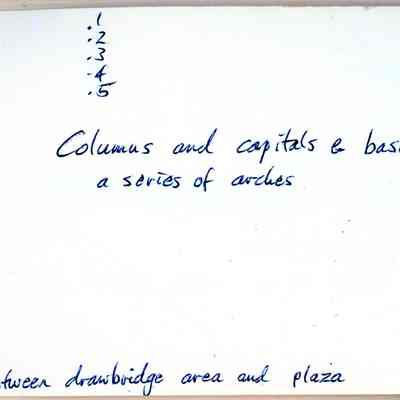 .1
.2
.3
.4
.5
Columns and capitals &
a series of arches
drawbridge area and plaza